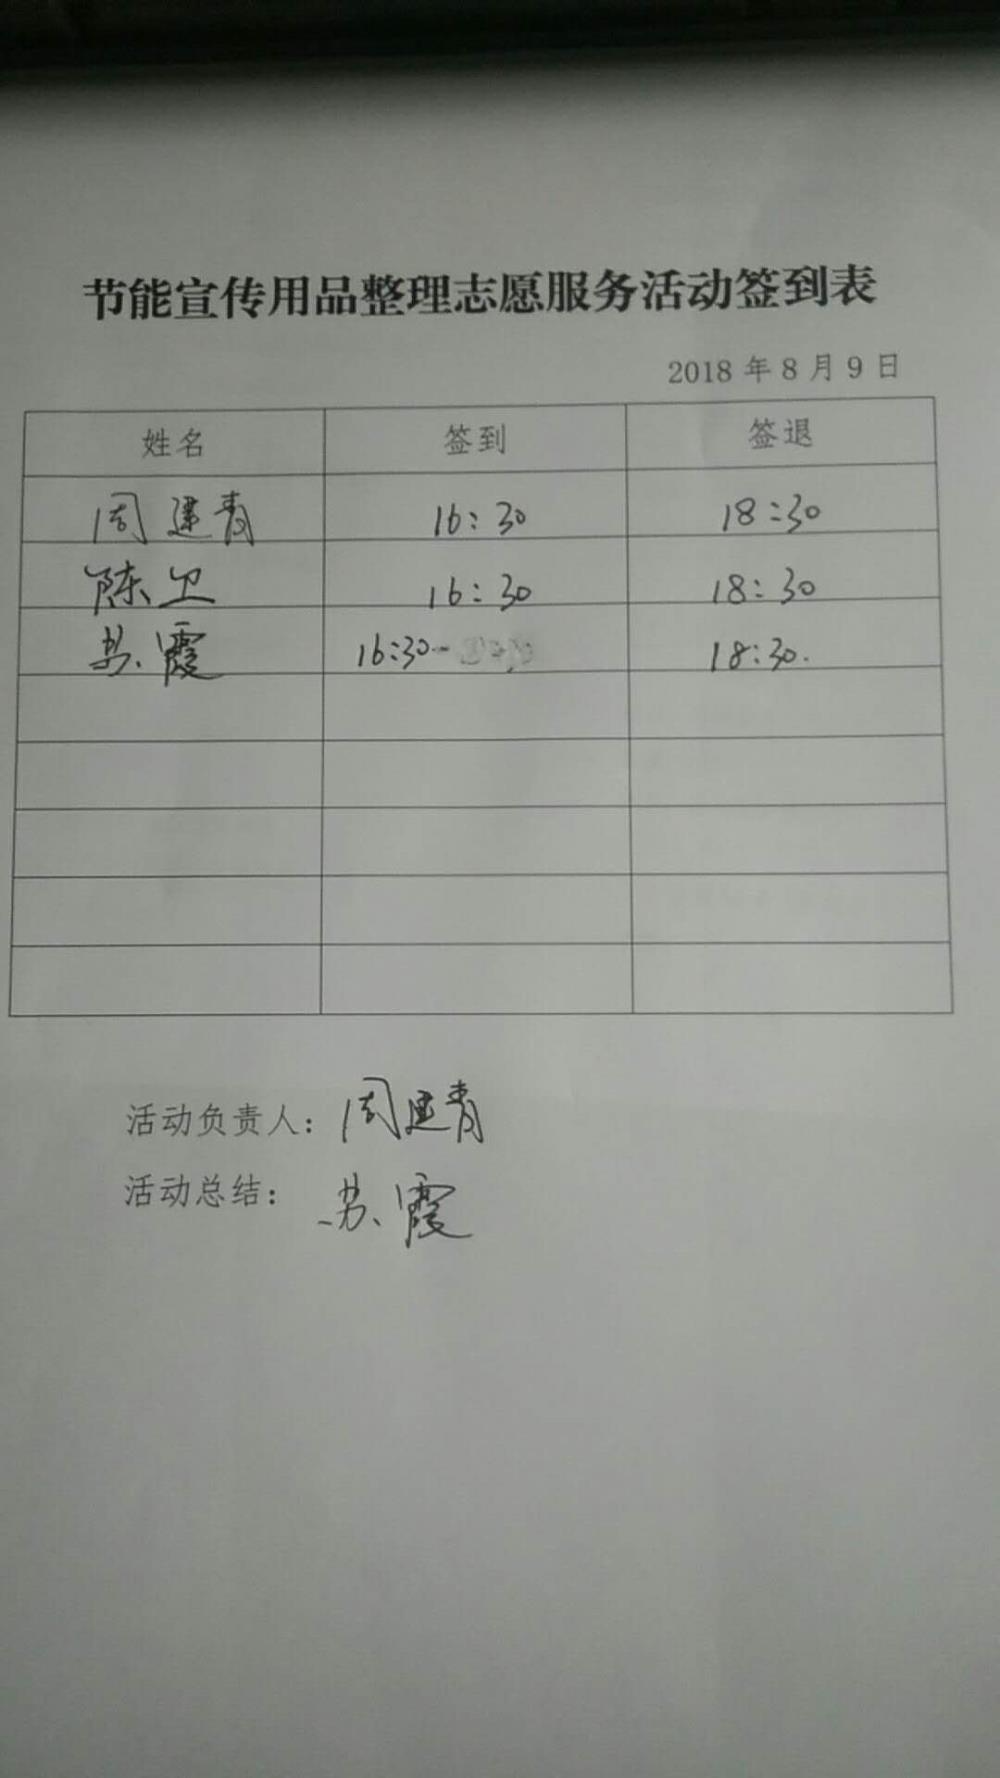 节能宣传用品整理志愿服务活动签到表
2018 年 8 月 9 日
姓名 签到 签退
周建青 16:30 18:30
陈卫 16:30 18:30
苏霞 16:30- 18:30.
活动负责人: 周建青
活动总结: 苏霞